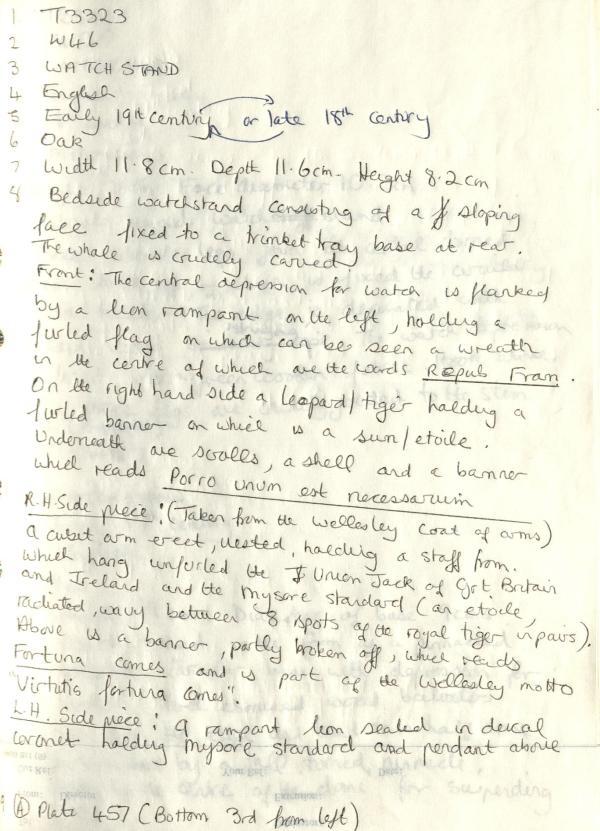 1 T3323
2 W46
3 WATCH STAND
4 English
5 Early 19th century or late 18th century
6 Oak
7 Width 11.8cm. Depth 11.6cm. Height 8.2cm
8 Bedside watchstand consisting of a sloping
face fixed to a trinket tray base at rear.
The whole is crudely carved
Front: The central depression for watch is flanked
by a lion rampant on the left, holding a
furled flag on which can be seen a wreath
in the centre of which are the words Repub Fran.
On the right hand side a leopard/tiger holding a
furled banner on which is a sun/etoile.
Underneath are scrolls, a shell and a banner
which reads Porro unum est necessarium
R.H. Side piece: (Taken from the Wellesley Coat of arms)
A cubit arm erect, vested, holding a staff from
which hang unfurled the Union Jack of Grt Britain
and Ireland and the Mysore standard (an etoile,
radiated, wavy between 8 spots of the royal tiger in pairs).
Above is a banner, partly broken off, which reads
Fortuna comes and is part of the Wellesley motto
"Virtutis fortuna comes".
L.H. Side piece: A rampant lion sealed in ducal
coronet holding Mysore standard and pendant above
9 (A) Plate 457 (Bottom 3rd from left)